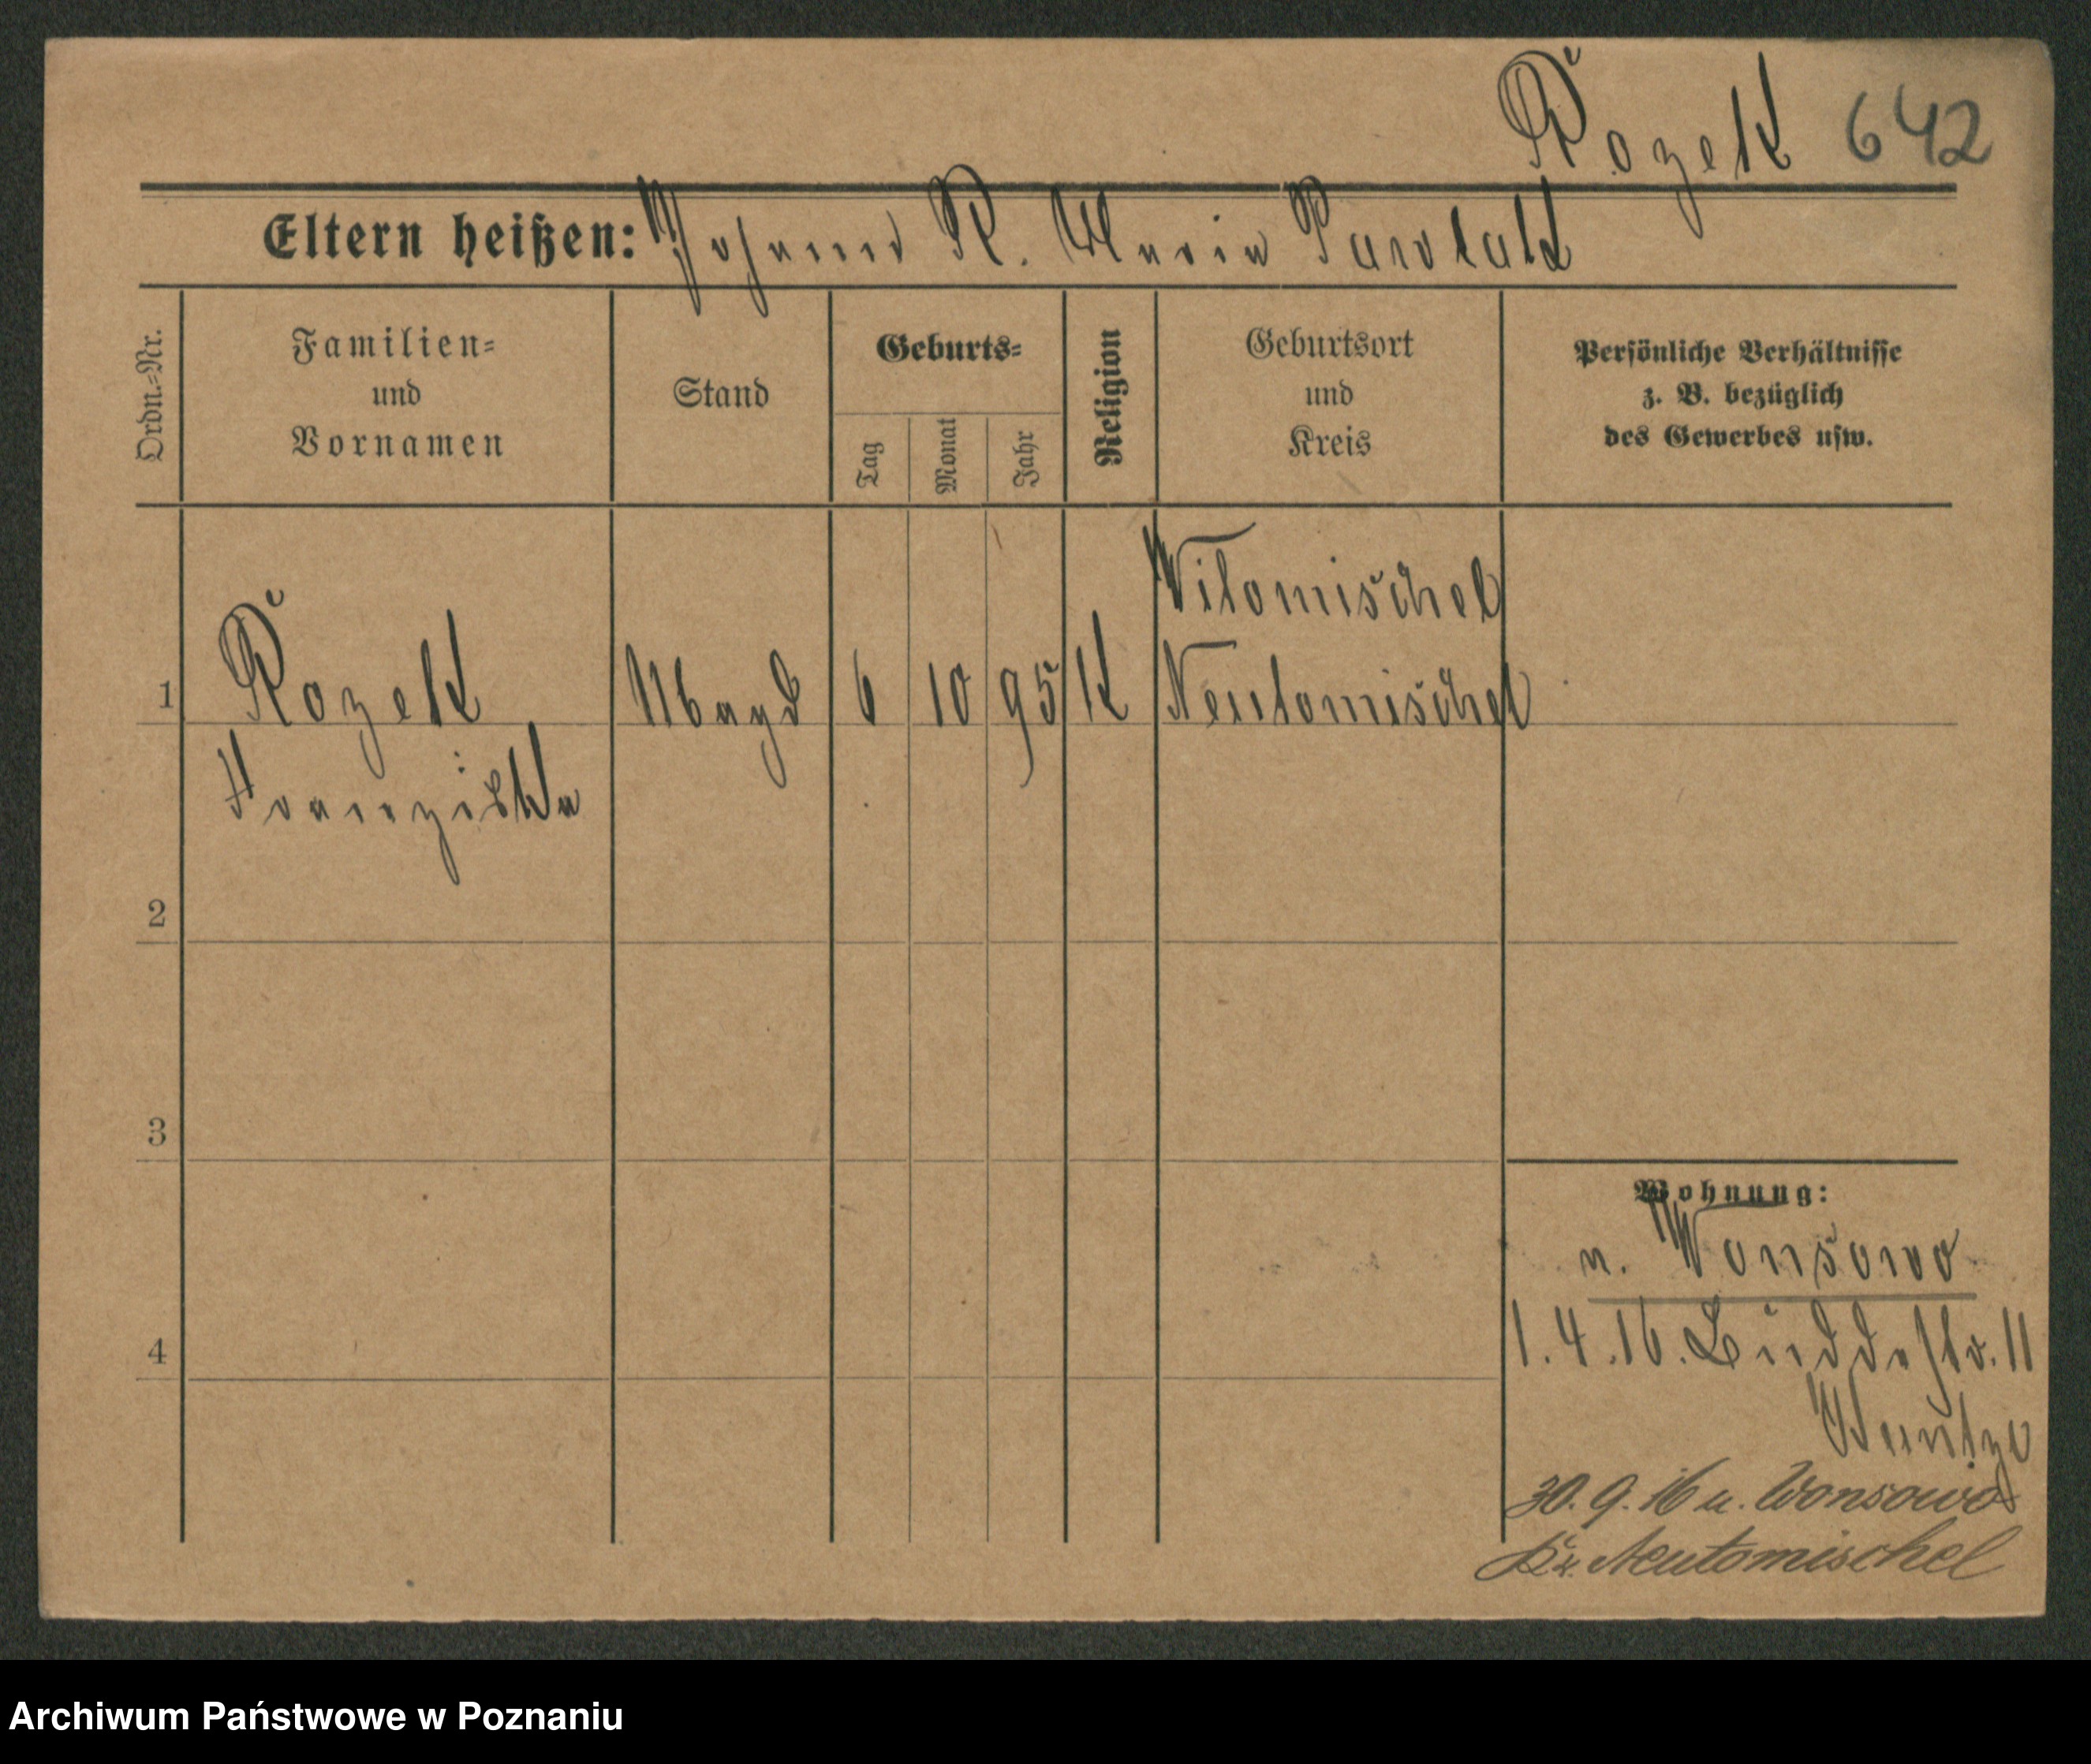 Rozek 642
Eltern heißen: Johann R. Maria Pawlak
Ordn.-Nr.
Familien-
und
Vornamen
Stand
Geburts-
Tag
Monat
Jahr
Religion
Geburtsort
und
Kreis
Persönliche Verhältnisse
z. B. bezüglich
des Gewerbes usw.
Witomischel
1 Rozek Magd 6 10 95 K Neutomischel
Franziska
2
3
4
Wohnung:
n. Wonsowo
1.4.16. Buddestr. 11
30.9.16 n. Wonsowo
Kr. Neutomischel
Archiwum Państwowe w Poznaniu